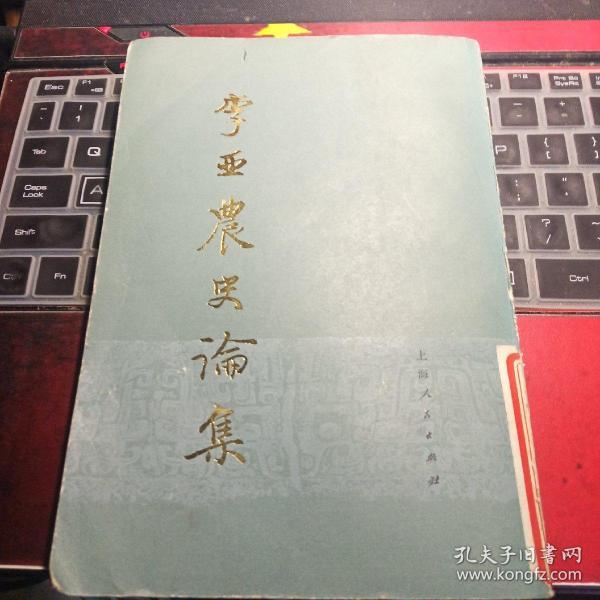 李亚農史論集
上海人民出版社
Esc
F1
F12
Prt Sc
SysRq
Tab
Q
P
Caps
Lock
A
Shift
Fn
Ctrl
孔夫子旧書网
www.kongfz.com